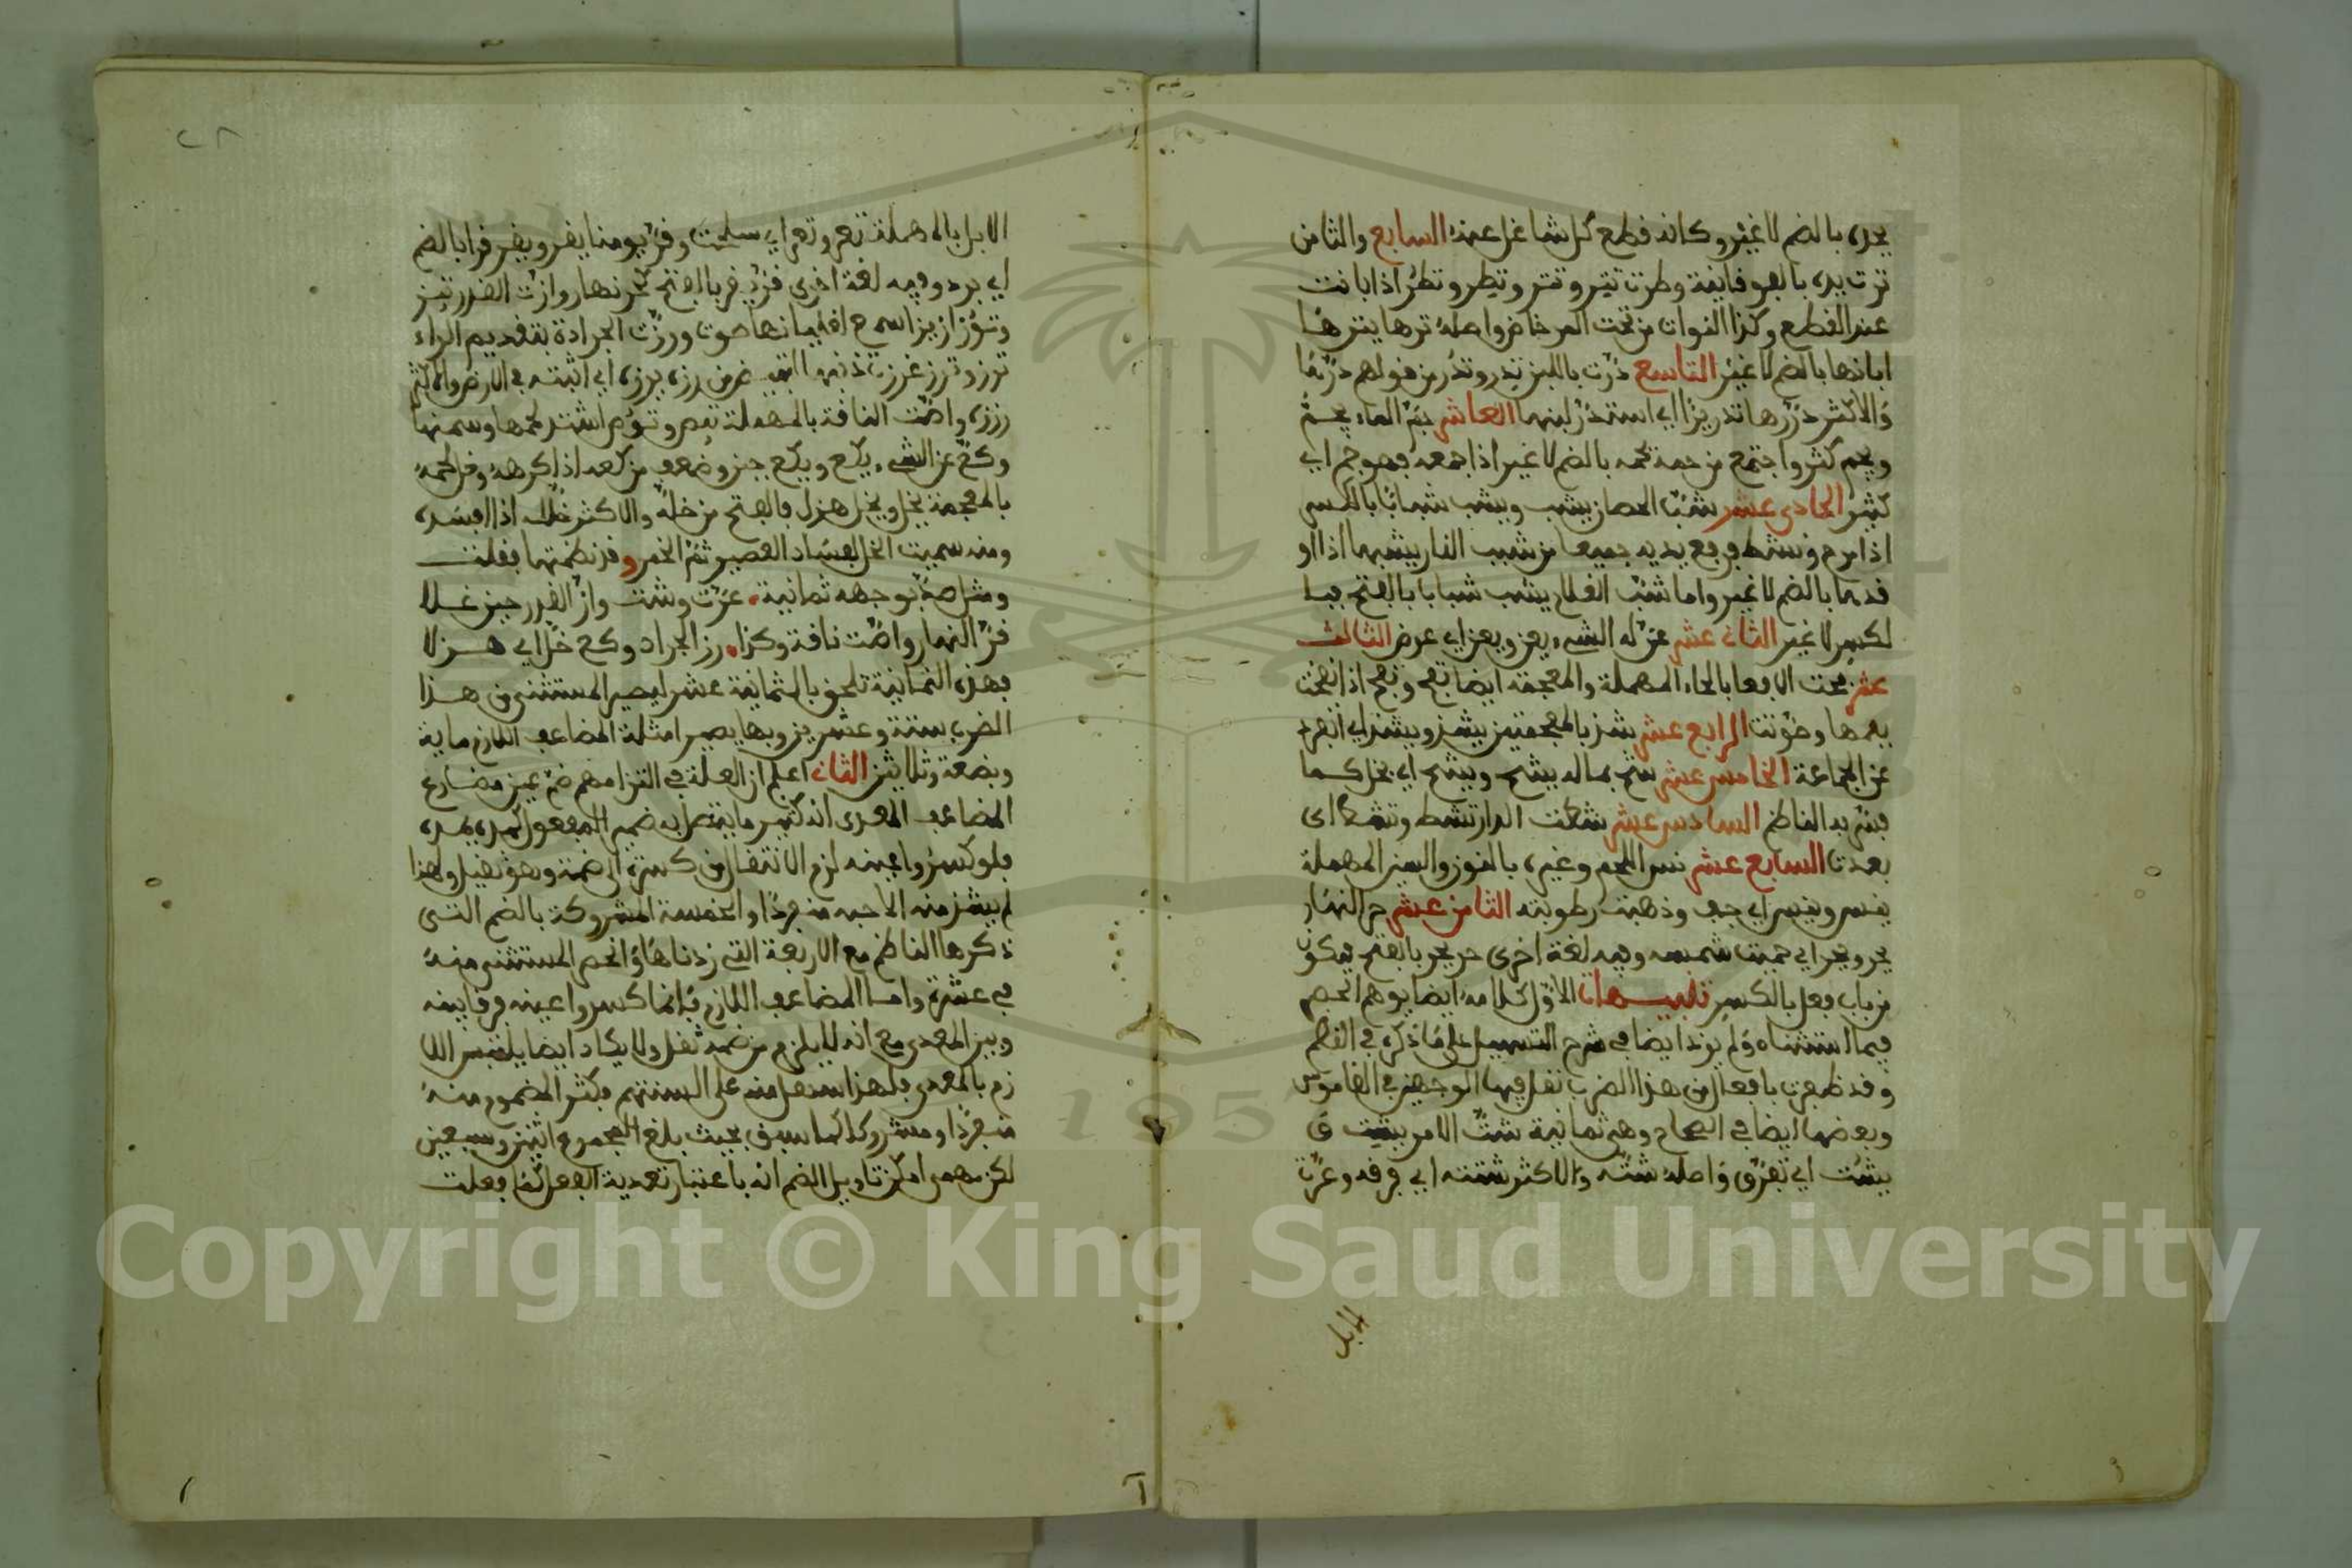 يحده بالضم لا غير وكانه قطع كل شاغل عنه السابع والثامن
ترت يده بالفوقانية وطرت تتر وتتر وتطر وتطر اذا بانت
عند القطع وكذا النواة من تحت المرضاض واصله ترها يترها
ابانها بالضم لا غير التاسع درت باللبن تدر وتدر من قولهم درها
والاكثر دررها تدريرا اي استدر لبنها العاشر جم الماء يجم
ويجم كثر واجتمع من جمه يجمه بالضم لا غير اذا جمعه فهو جم اي
كثير الحادي عشر شب الحصان يشب ويشب شبابا بالكسر
اذا مرح ونشط ورفع يديه جميعا من شب النار يشبها اذا او
قدها بالضم لا غير واما شب الغلام يشب شبابا بالفتح فبا
لكسر لا غير الثاني عشر عن له الشيء يعن ويعن اي عرض الثالث
عشر فحت الافعى بالحاء المهملة والمعجمة ايضا تفح وتفح اذا نفخت
بفمها وصوتت الرابع عشر شذ بالمعجمتين يشذ ويشذ اي انفرد
عن الجماعة الخامس عشر شح بماله يشح ويشح اي بخل كما
قيد به الناظم السادس عشر شطت الدار تشط وتشط اي
بعدت السابع عشر نس اللحم وغيره بالنون والسين المهملة
ينس وينس اي جف وذهبت رطوبته الثامن عشر حر النهار
يحر ويحر اي حميت شمسه وفيه لغة اخرى حر يحر بالفتح فيكون
من باب فعل بالكسر تنبيهات الاول كلامه ايضا يوهم الحصر
فيما استثناه ولم يزد ايضا في شرح التسهيل على ما ذكره في النظم
وقد ظفرت بافعال من هذا الضرب نقل فيها الوجهين في القاموس
وبعضها ايضا في الصحاح وهي ثمانية شت الامر يشت و
يشت اي تفرق واصله شته والاكثر شتته اي فرقه وعرت
الابل
٢٨
الابل بالمهملة تعر وتعر اي سلحت وقر يومنا يقر ويقر قرا بالضم
اي برد وفيه لغة اخرى قر يقر بالفتح كحر نهارنا وازت القدر تئز
وتؤز ازيزا سمع لغليانها صوت ورزت الجرادة بتقديم الراء
ترز وترز غرزت ذنبها لتبيض من رزه يرزه اي اثبته في الارض والاكثر
رززه واصت الناقة بالمهملة تئص وتؤص اشتد لحمها وسمنها
وكع عن الشيء يكع ويكع جبن وضعف من كعه اذا كرهه وخل لحمه
بالمعجمة يخل ويخل هزل فالفتح من خله والاكثر خلله اذا افسده
ومنه سميت الخل لفساد العصير ثم الخمر وقد نظمتها فقلت
ومثل صد بوجهيه ثمانية عرت وشت واز القدر حين غلا
قر النهار واصت ناقة وكذا رز الجراد وكع خل اي هزلا
فهذه الثمانية تلحق بالثمانية عشر ليصير المستثنى من هذا
الضرب ستة وعشرين وبها يصير امثلة المضاعف اللازم مائة
وبضعة وثلاثين الثاني اعلم ان العلة في التزامهم ضم عين مضارع
المضاعف المعدى انه كثير ما يتصل به ضمير المفعول كمده يمده
فلو كسروا عينه لزم الانتقال من كسرة الى ضمة وهو ثقيل ولهذا
لم يشذ منه الا حبه منفردا والخمسة المشروكة بالضم التي
ذكرها الناظم مع الاربعة التي زدناها وانحصر المستثنى منه
في عشرة واما المضاعف اللازم فانما كسروا عينه فرقا بينه
وبين المعدى مع انه لا يلزم من ضمه ثقل ولا يكاد ايضا يلتبس اللا
زم بالمعدى فلهذا سهل منه على السنتهم فكثر المضموم منه
منفردا ومشروكا كما سبق بحيث بلغ المجموع اثنين وسبعين
لكن مهما امكن تاويل الضم انه باعتبار تعدية الفعل كما فعلت
Copyright © King Saud University
1957